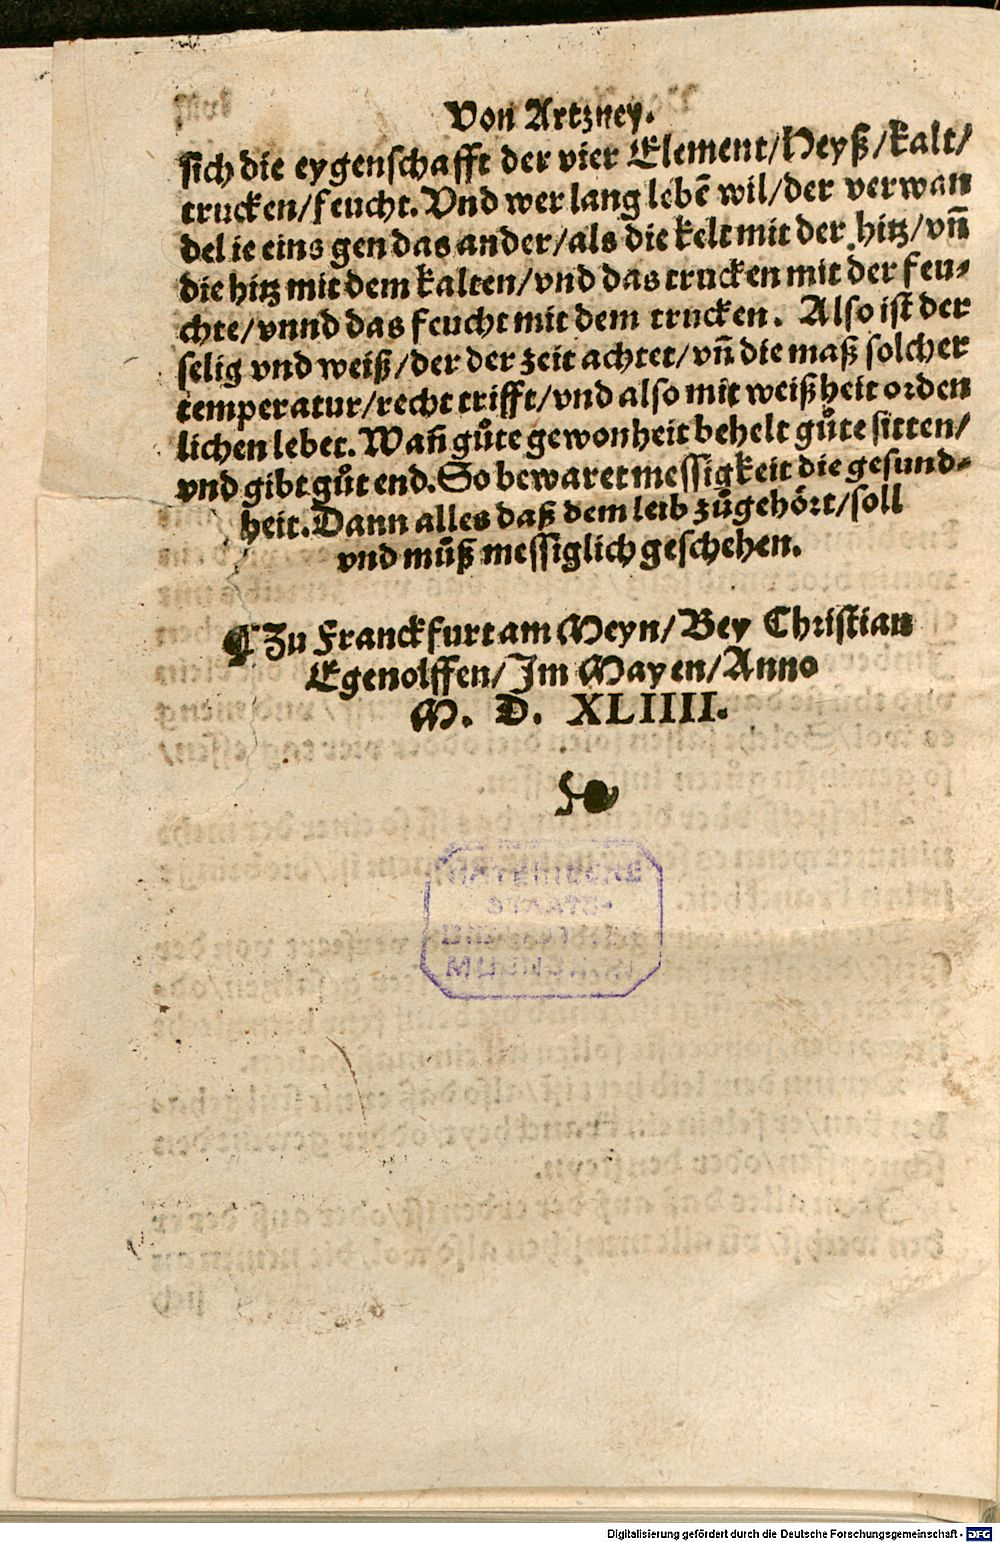 Von Artzney.
sich die eygenschafft der vier Element/Heyß/kalt/
trucken/feucht. Vnd wer lang lebē wil/der verwan
del ie eins gen das ander/als die kelt mit der hitz/vñ
die hitz mit dem kalten/vnd das trucken mit der feu⸗
chte/vnnd das feucht mit dem trucken. Also ist der
selig vnd weiß/der der zeit achtet/vñ die maß solcher
temperatur/recht trifft/vnd also mit weißheit orden
lichen lebet. Wañ gůte gewonheit behelt gůte sitten/
vnd gibt gůt end. So bewaret messigkeit die gesund⸗
heit. Dann alles daß dem leib zůgehört/soll
vnd můß messiglich geschehen.
¶ Zu Franckfurt am Meyn/Bey Christian
Egenolffen/Im Mayen/Anno
M. D. XLIIII.
BAYERISCHE
STAATS-
BIBLIOTHEK
MUENCHEN
Digitalisierung gefördert durch die Deutsche Forschungsgemeinschaft - DFG